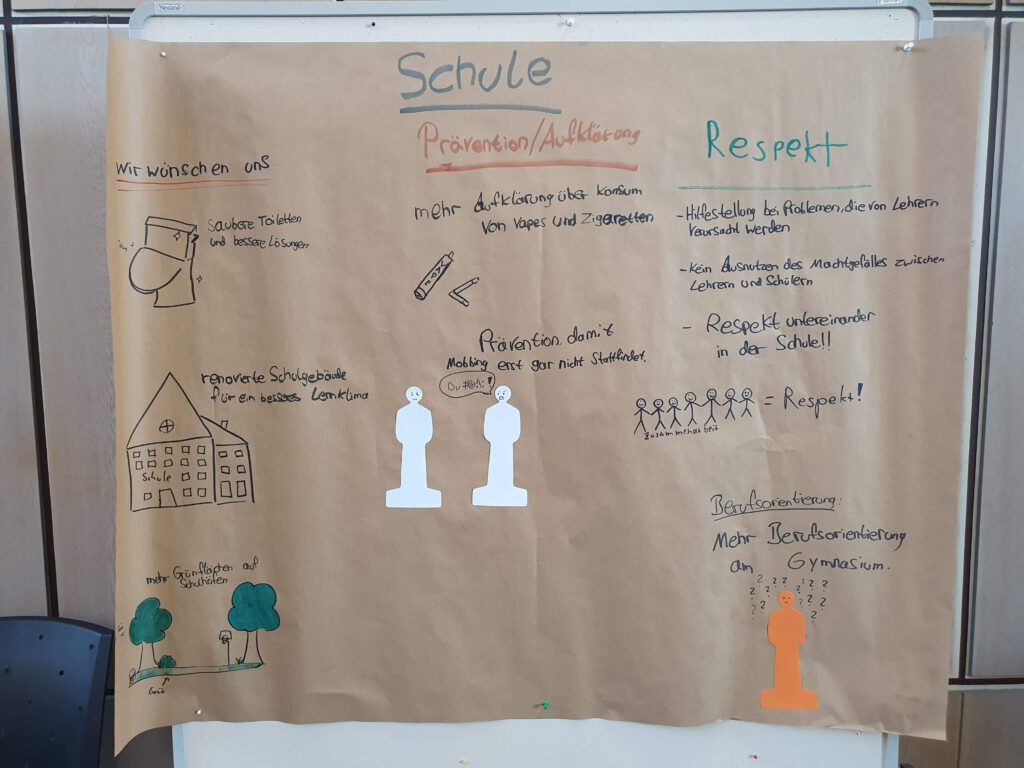 Neuland
Schule
Wir wünschen uns...
Saubere Toiletten
und bessere Lösungen
renovierte Schulgebäude
für ein besseres Lernklima
Schule
mehr Grünflächen auf
Schulhöfen
Grün
Prävention/Aufklärung
mehr Aufklärung über Konsum
von Vapes und Zigaretten
Prävention damit
Mobbing erst gar nicht stattfindet.
Du #@&!
Respekt
- Hilfestellung bei Problemen, die von Lehrern
verursacht werden
- Kein Ausnutzen des Machtgefälles zwischen
Lehrern und Schülern
- Respekt untereinander
in der Schule!!
= Respekt!
Zusammenarbeit
Berufsorientierung:
Mehr Berufsorientierung
am Gymnasium.
? ? ? ? ? ?
? ? ? ?
? ? ? ?
?